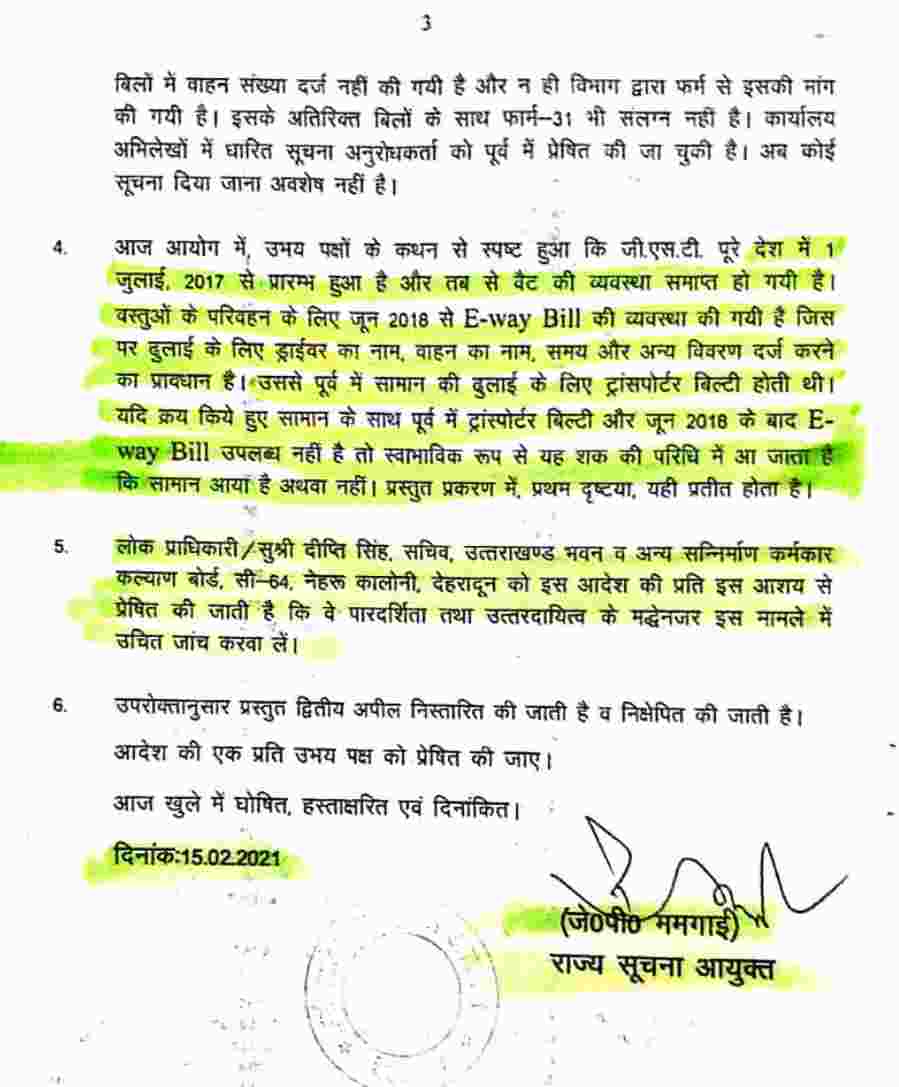 3
बिलों में वाहन संख्या दर्ज नहीं की गयी है और न ही विभाग द्वारा फर्म से इसकी मांग
की गयी है। इसके अतिरिक्त बिलों के साथ फार्म–31 भी संलग्न नहीं है। कार्यालय
अभिलेखों में धारित सूचना अनुरोधकर्ता को पूर्व में प्रेषित की जा चुकी है। अब कोई
सूचना दिया जाना अवशेष नहीं है।
4. आज आयोग में, उभय पक्षों के कथन से स्पष्ट हुआ कि जी.एस.टी. पूरे देश में 1
जुलाई, 2017 से प्रारम्भ हुआ है और तब से वैट की व्यवस्था समाप्त हो गयी है।
वस्तुओं के परिवहन के लिए जून 2018 से E-way Bill की व्यवस्था की गयी है जिस
पर ढुलाई के लिए ड्राईवर का नाम, वाहन का नाम, समय और अन्य विवरण दर्ज करने
का प्रावधान है। उससे पूर्व में सामान की ढुलाई के लिए ट्रांसपोर्टर बिल्टी होती थी।
यदि क्रय किये हुए सामान के साथ पूर्व में ट्रांस्पोर्टर बिल्टी और जून 2018 के बाद E-
way Bill उपलब्ध नहीं है तो स्वाभाविक रूप से यह शक की परिधि में आ जाता है
कि सामान आया है अथवा नहीं। प्रस्तुत प्रकरण में, प्रथम दृष्टया, यही प्रतीत होता है।
5. लोक प्राधिकारी/सुश्री दीप्ति सिंह, सचिव, उत्तराखण्ड भवन व अन्य सन्निर्माण कर्मकार
कल्याण बोर्ड, सी–64, नेहरू कालोनी, देहरादून को इस आदेश की प्रति इस आशय से
प्रेषित की जाती है कि वे पारदर्शिता तथा उत्तरदायित्व के मद्देनजर इस मामले में
उचित जांच करवा लें।
6. उपरोक्तानुसार प्रस्तुत द्वितीय अपील निस्तारित की जाती है व निक्षेपित की जाती है।
आदेश की एक प्रति उभय पक्ष को प्रेषित की जाए।
आज खुले में घोषित, हस्ताक्षरित एवं दिनांकित।
दिनांक:15.02.2021
(जे0पी0 ममगाई)
राज्य सूचना आयुक्त